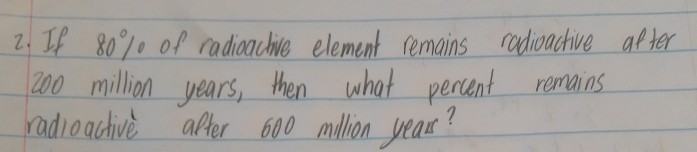 2. If 80% of radioactive element remains radioactive after
200 million years, then what percent remains
radioactive after 600 million years?